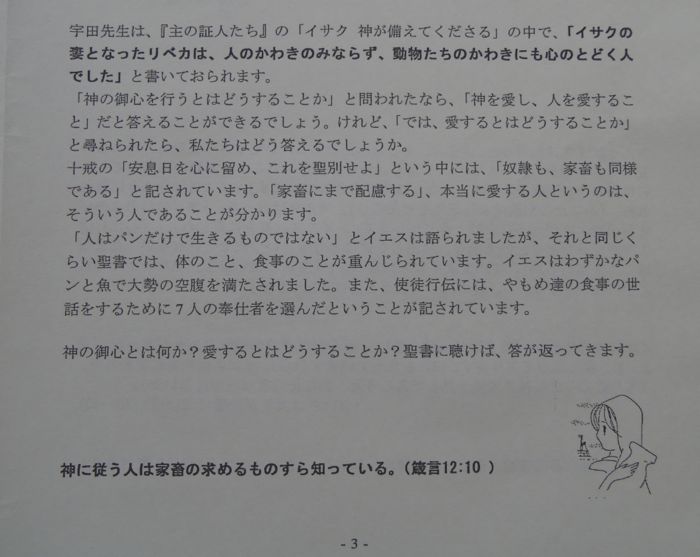 宇田先生は、『主の証人たち』の「イサク 神が備えてくださる」の中で、「イサクの
妻となったリベカは、人のかわきのみならず、動物たちのかわきにも心のとどく人
でした」と書いておられます。
「神の御心を行うとはどうすることか」と問われたなら、「神を愛し、人を愛するこ
と」だと答えることができるでしょう。けれど、「では、愛するとはどうすることか」
と尋ねられたら、私たちはどう答えるでしょうか。
十戒の「安息日を心に留め、これを聖別せよ」という中には、「奴隷も、家畜も同様
である」と記されています。「家畜にまで配慮する」、本当に愛する人というのは、
そういう人であることが分かります。
「人はパンだけで生きるものではない」とイエスは語られましたが、それと同じく
らい聖書では、体のこと、食事のことが重んじられています。イエスはわずかなパ
ンと魚で大勢の空腹を満たされました。また、使徒行伝には、やもめ達の食事の世
話をするために７人の奉仕者を選んだということが記されています。
神の御心とは何か？愛するとはどうすることか？聖書に聴けば、答が返ってきます。
神に従う人は家畜の求めるものすら知っている。（箴言12:10 ）
- 3 -